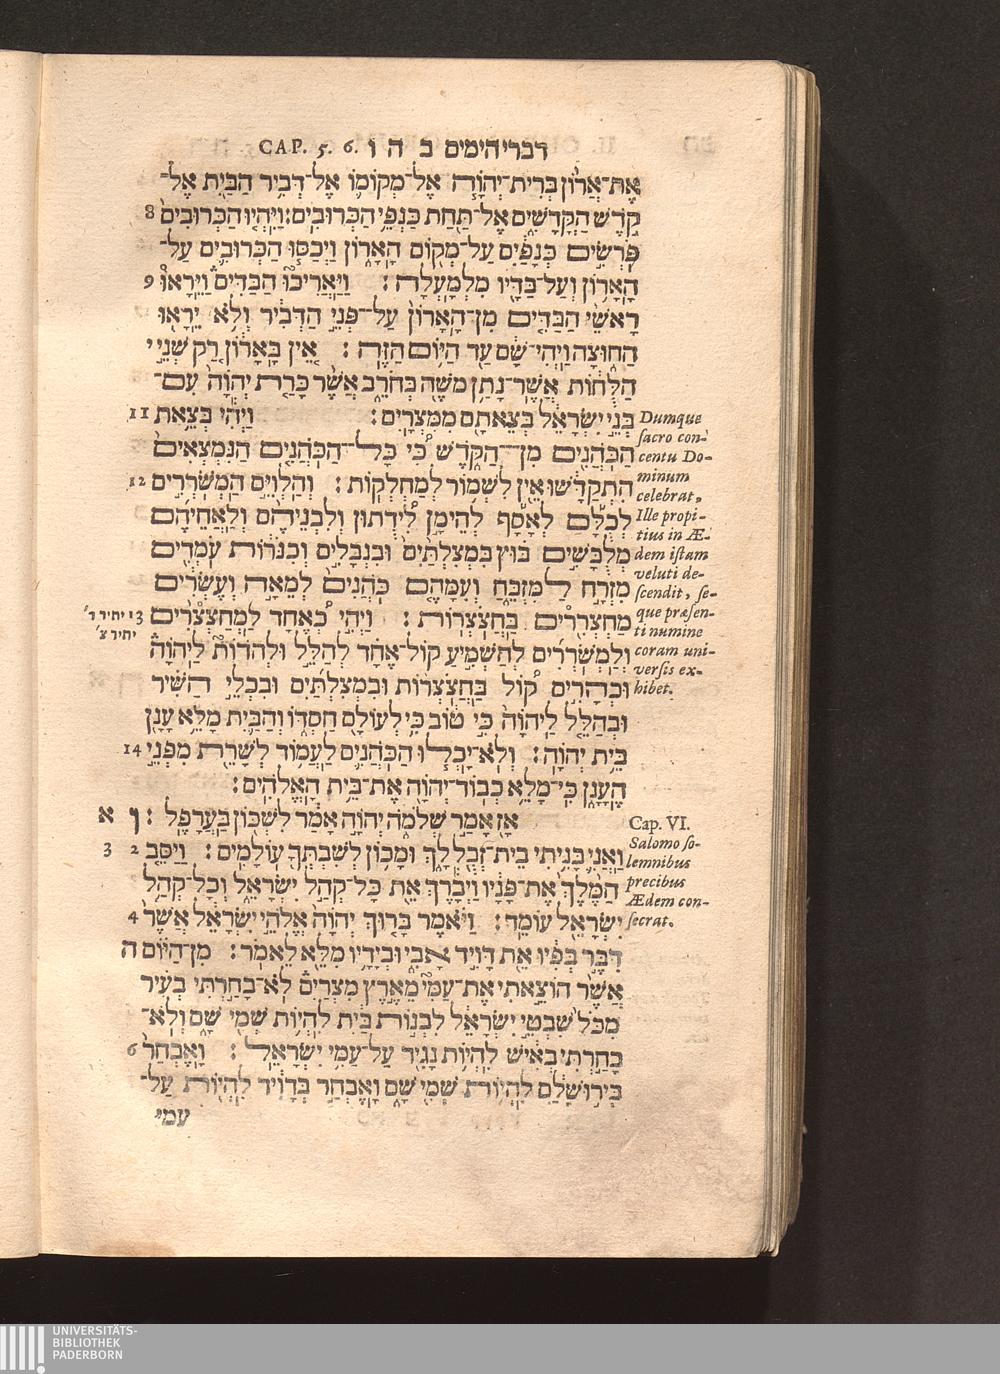 דברי הימים ב ה ו CAP. 5. 6.
אֶת־אֲרוֹן בְּרִית־יְהוָה אֶל־מְקוֹמוֹ אֶל־דְּבִיר הַבַּיִת אֶל־
קֹדֶשׁ הַקֳּדָשִׁים אֶל־תַּחַת כַּנְפֵי הַכְּרוּבִים: וַיִּהְיוּ הַכְּרוּבִים 8
פֹּרְשִׂים כְּנָפַיִם עַל־מְקוֹם הָאָרוֹן וַיְכַסּוּ הַכְּרוּבִים עַל־
הָאָרוֹן וְעַל־בַּדָּיו מִלְמָעְלָה: וַיַּאֲרִיכוּ הַבַּדִּים וַיֵּרָאוּ 9
רָאשֵׁי הַבַּדִּים מִן־הָאָרוֹן עַל־פְּנֵי הַדְּבִיר וְלֹא יֵרָאוּ
הַחוּצָה וַיְהִי־שָׁם עַד הַיּוֹם הַזֶּה: אֵין בָּאָרוֹן רַק שְׁנֵי י
הַלֻּחוֹת אֲשֶׁר־נָתַן מֹשֶׁה בְּחֹרֵב אֲשֶׁר כָּרַת יְהוָה עִם־
בְּנֵי יִשְׂרָאֵל בְּצֵאתָם מִמִּצְרָיִם: וַיְהִי בְּצֵאת 11
הַכֹּהֲנִים מִן־הַקֹּדֶשׁ כִּי כָּל־הַכֹּהֲנִים הַנִּמְצְאִים
הִתְקַדָּשׁוּ אֵין לִשְׁמוֹר לְמַחְלְקוֹת: וְהַלְוִיִּם הַמְשֹׁרְרִים 12
לְכֻלָּם לְאָסָף לְהֵימָן לִידֻתוּן וְלִבְנֵיהֶם וְלַאֲחֵיהֶם
מְלֻבָּשִׁים בּוּץ בִּמְצִלְתַּיִם וּבִנְבָלִים וְכִנֹּרוֹת עֹמְדִים
מִזְרָח לַמִּזְבֵּחַ וְעִמָּהֶם כֹּהֲנִים לְמֵאָה וְעֶשְׂרִים
מַחְצְרִרים בַּחֲצֹצְרוֹת: וַיְהִי כְאֶחָד לַמְחַצצְּרִים 13
וְלַמְשֹׁרְרִים לְהַשְׁמִיעַ קוֹל־אֶחָד לְהַלֵּל וּלְהֹדוֹת לַיהוָה
וּכְהָרִים קוֹל בַּחֲצֹצְרוֹת וּבִמְצִלְתַּיִם וּבִכְלֵי הַשִּׁיר
וּבְהַלֵּל לַיהוָה כִּי טוֹב כִּי לְעוֹלָם חַסְדּוֹ וְהַבַּיִת מָלֵא עָנָן
בֵּית יְהוָה: וְלֹא־יָכְלוּ הַכֹּהֲנִים לַעֲמוֹד לְשָׁרֵת מִפְּנֵי 14
הֶעָנָן כִּי־מָלֵא כְבוֹד־יְהוָה אֶת־בֵּית הָאֱלֹהִים:
אָז אָמַר שְׁלֹמֹה יְהוָה אָמַר לִשְׁכּוֹן בָּעֲרָפֶל: ו א
וַאֲנִי בָּנִיתִי בֵית־זְבֻל לָךְ וּמָכוֹן לְשִׁבְתְּךָ עוֹלָמִים: וַיַּסֵּב 2 3
הַמֶּלֶךְ אֶת־פָּנָיו וַיְבָרֶךְ אֵת כָּל־קְהַל יִשְׂרָאֵל וְכָל־קְהַל
יִשְׂרָאֵל עוֹמֵד: וַיֹּאמֶר בָּרוּךְ יְהוָה אֱלֹהֵי יִשְׂרָאֵל אֲשֶׁר 4
דִּבֶּר בְּפִיו אֵת דָּוִיד אָבִי וּבְיָדָיו מִלֵּא לֵאמֹר: מִן־הַיּוֹם ה
אֲשֶׁר הוֹצֵאתִי אֶת־עַמִּי מֵאֶרֶץ מִצְרַיִם לֹא־בָחַרְתִּי בְעִיר
מִכֹּל שִׁבְטֵי יִשְׂרָאֵל לִבְנוֹת בַּיִת לִהְיוֹת שְׁמִי שָׁם וְלֹא־
בָחַרְתִּי בְאִישׁ לִהְיוֹת נָגִיד עַל־עַמִּי יִשְׂרָאֵל: וָאֶבְחַר 6
בִּירוּשָׁלִַם לִהְיוֹת שְׁמִי שָׁם וָאֶבְחַר בְּדָוִיד לִהְיוֹת עַל־
עמי
Dumque
sacro con-
centu Do-
minum
celebrat,
Ille propi-
tius in Æ-
dem istam
veluti de-
scendit, se-
que præsen-
ti numine
coram uni-
versis ex-
hibet.
יתיר ר'
יתיר צ'
Cap. VI.
Salomo so-
lemnibus
precibus
Ædem con-
secrat.
UNIVERSITÄTS-
BIBLIOTHEK
PADERBORN